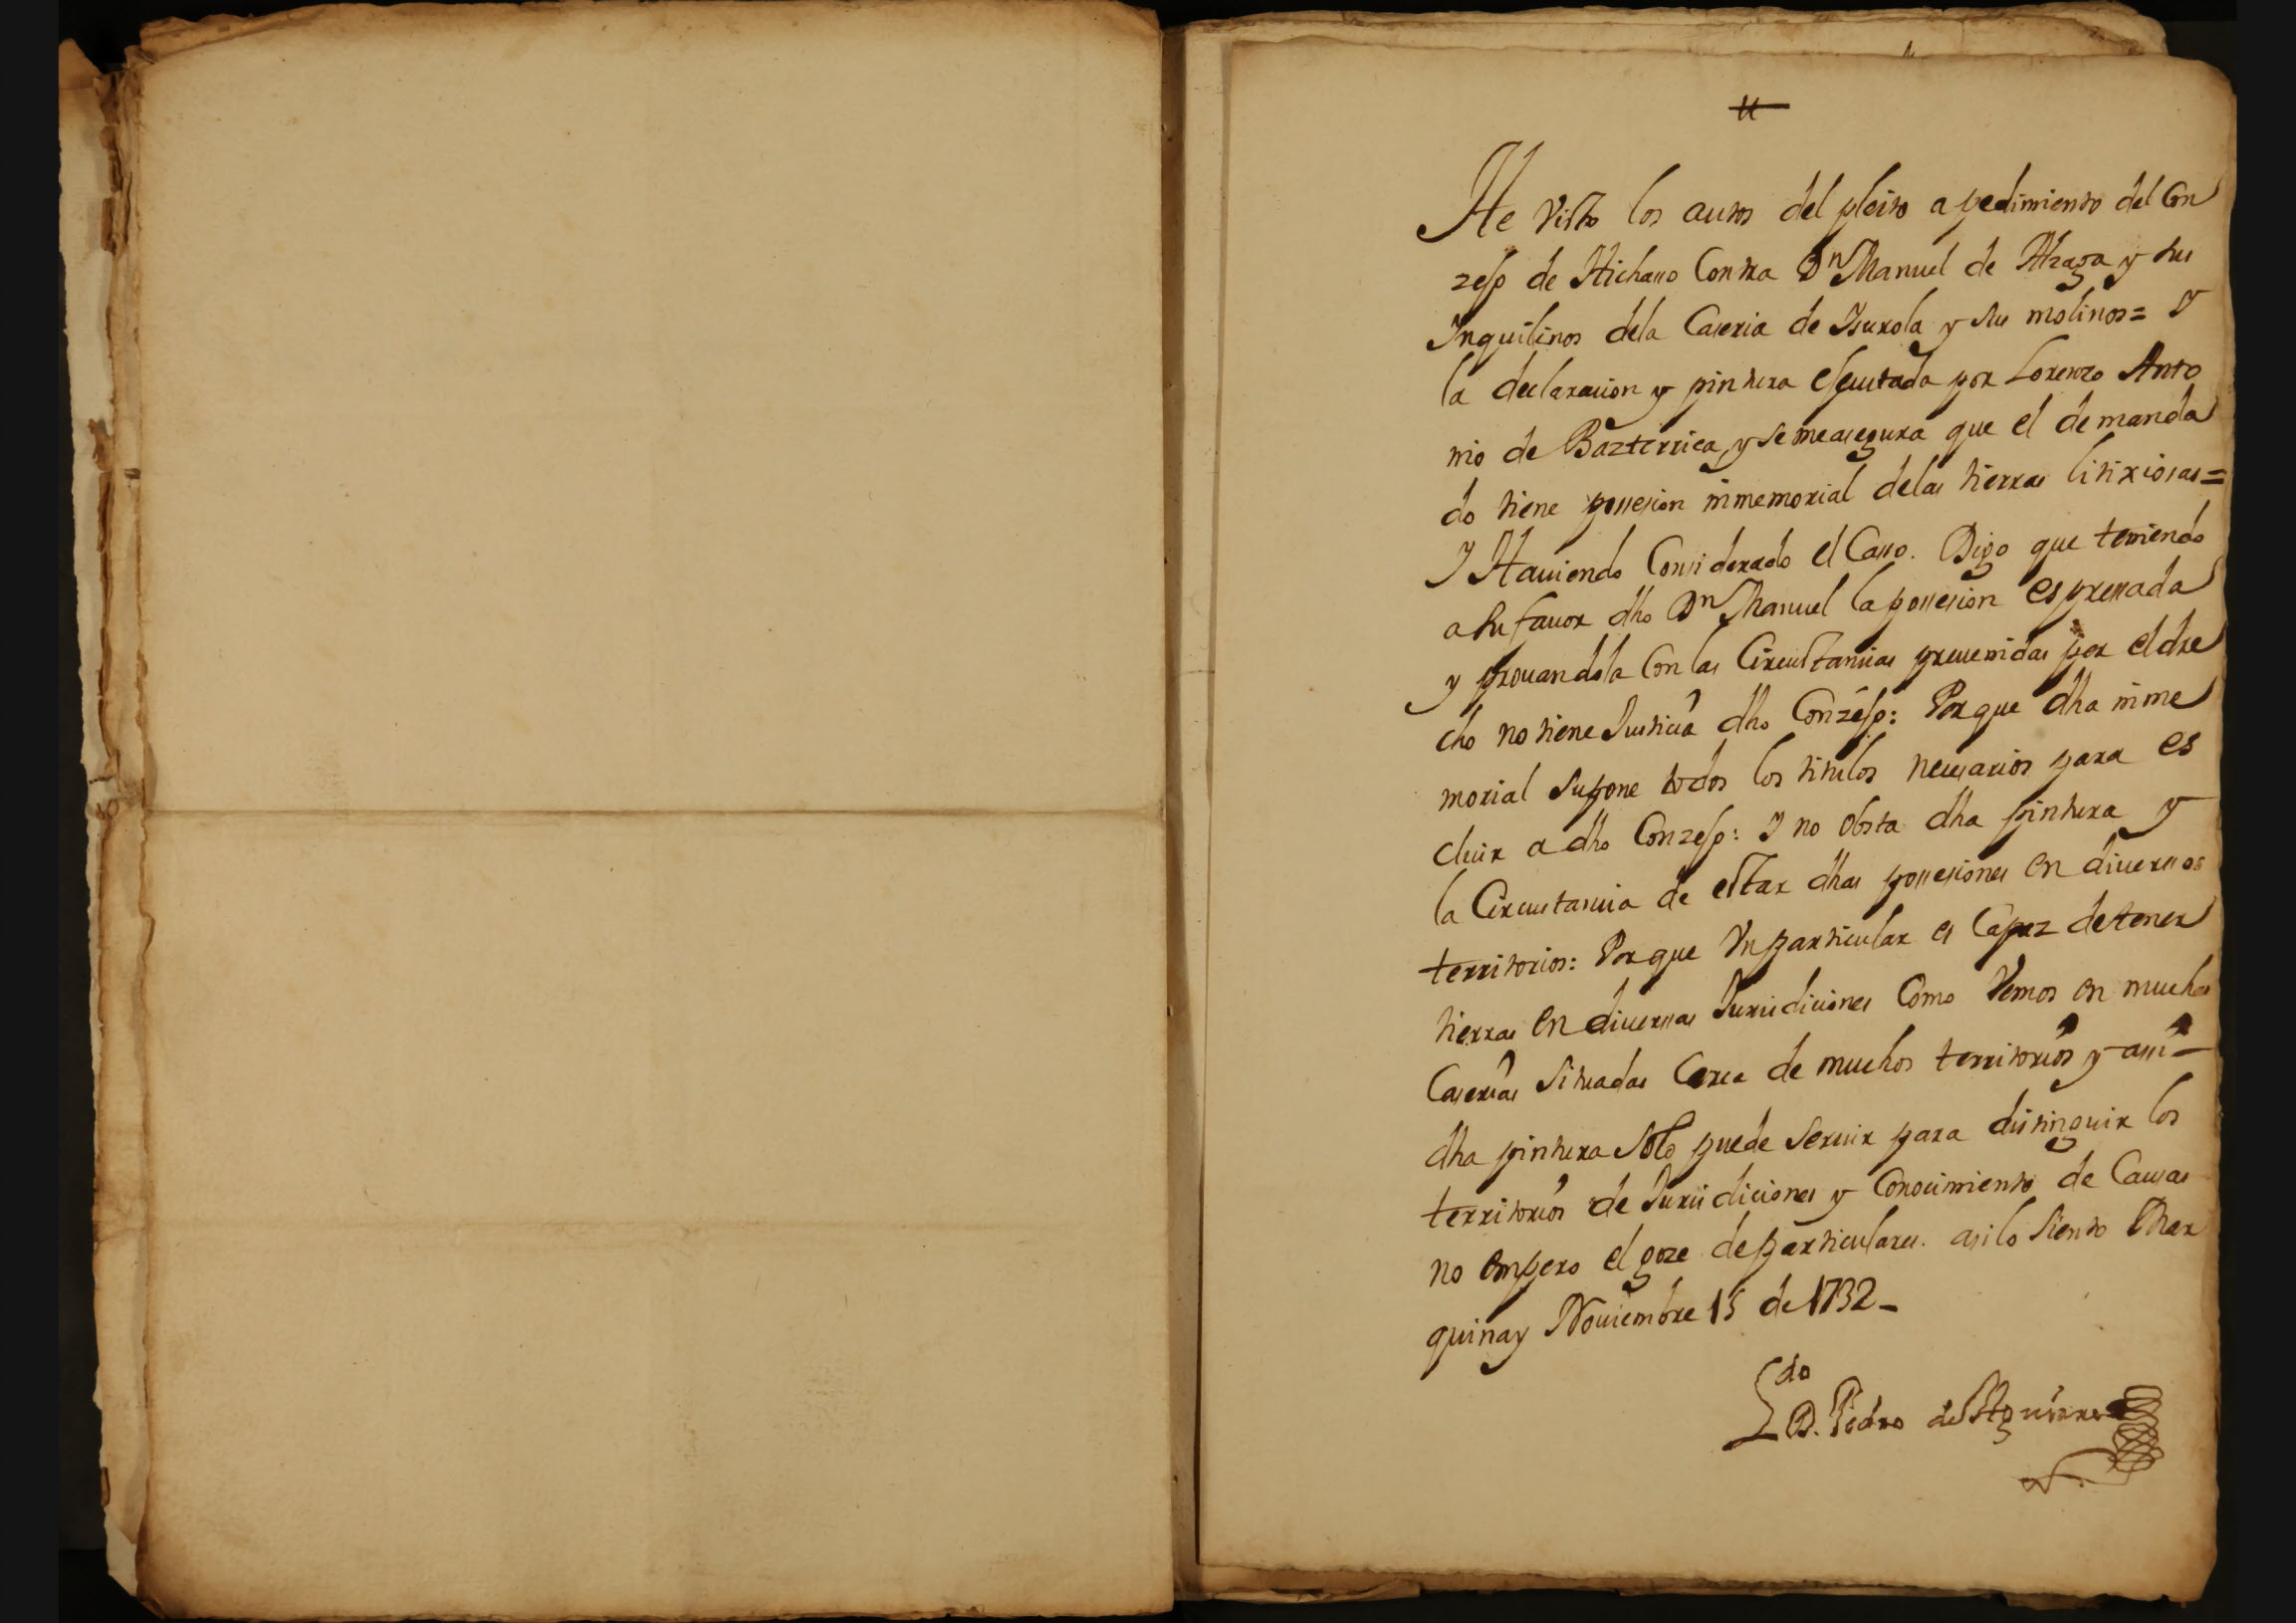 He Visto los autos del pleito a pedimiento del Con
zejo de Hichaso Contra Dn Manuel de Alzaga y sus
Inquilinos dela Caseria de Ysurola y sus molinos= Y
la declaracion y pintura esecutada por Lorenzo Anto
nio de Bazterrica, y se measegura que el demanda
do tiene possesion inmemorial delas tierras litixiosas=
Y Hauiendo Considerado el Casso. Digo que teniendo
a su fauor dho Dn Manuel la possesion espressada
y prouandola Con las Circustancias preuenidas por el dre
cho no tiene Justicia dho Conzejo: Porque dha inme
morial supone todos los titulos necesarios para es
cluir a dho Conzejo: Y no obsta dha pintura y
la Circustancia de estar dhas possesiones en diuersos
territorios: Porque Vn particular es Capaz detener
tierras en diuersas Jurisdiciones Como Vemos en muchas
Caserias Situadas Cerca de muchos territorios y assi
dha pintura Solo puede Seruir para distinguir los
territorios de Jurisdiciones y Conocimiento de Causas
no empero el goze departiculares. asilo Siento Mar
quina y Nouiembre 15 de 1732_
Ldo
D. Pedro de Aguirre